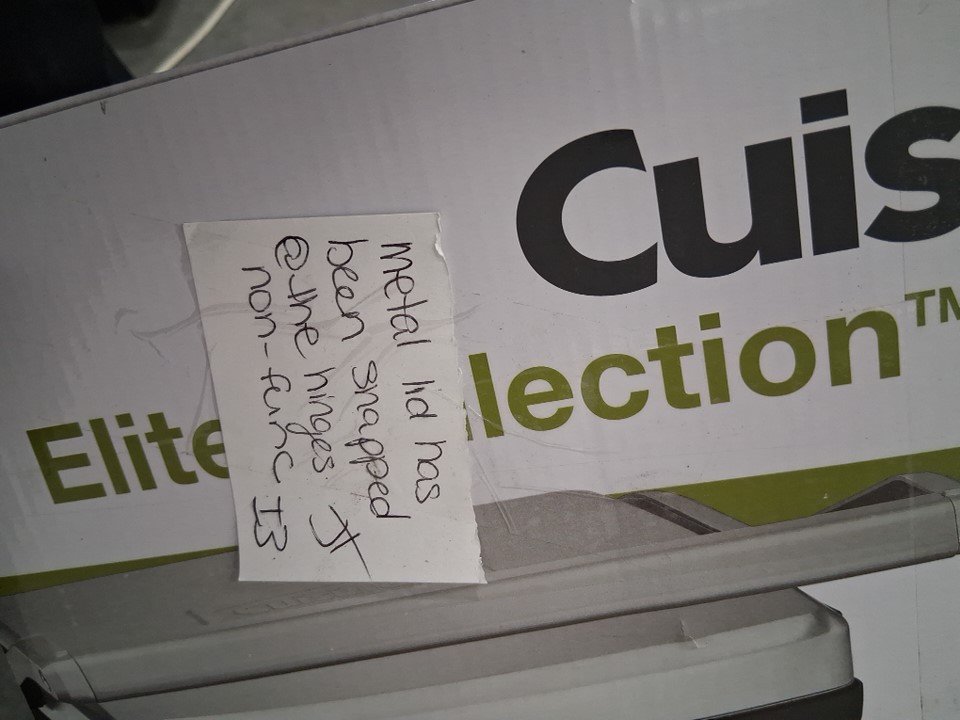 Cuis
Elite llection™
metal lid has
been snapped
@ the hinges JT
non-func I3